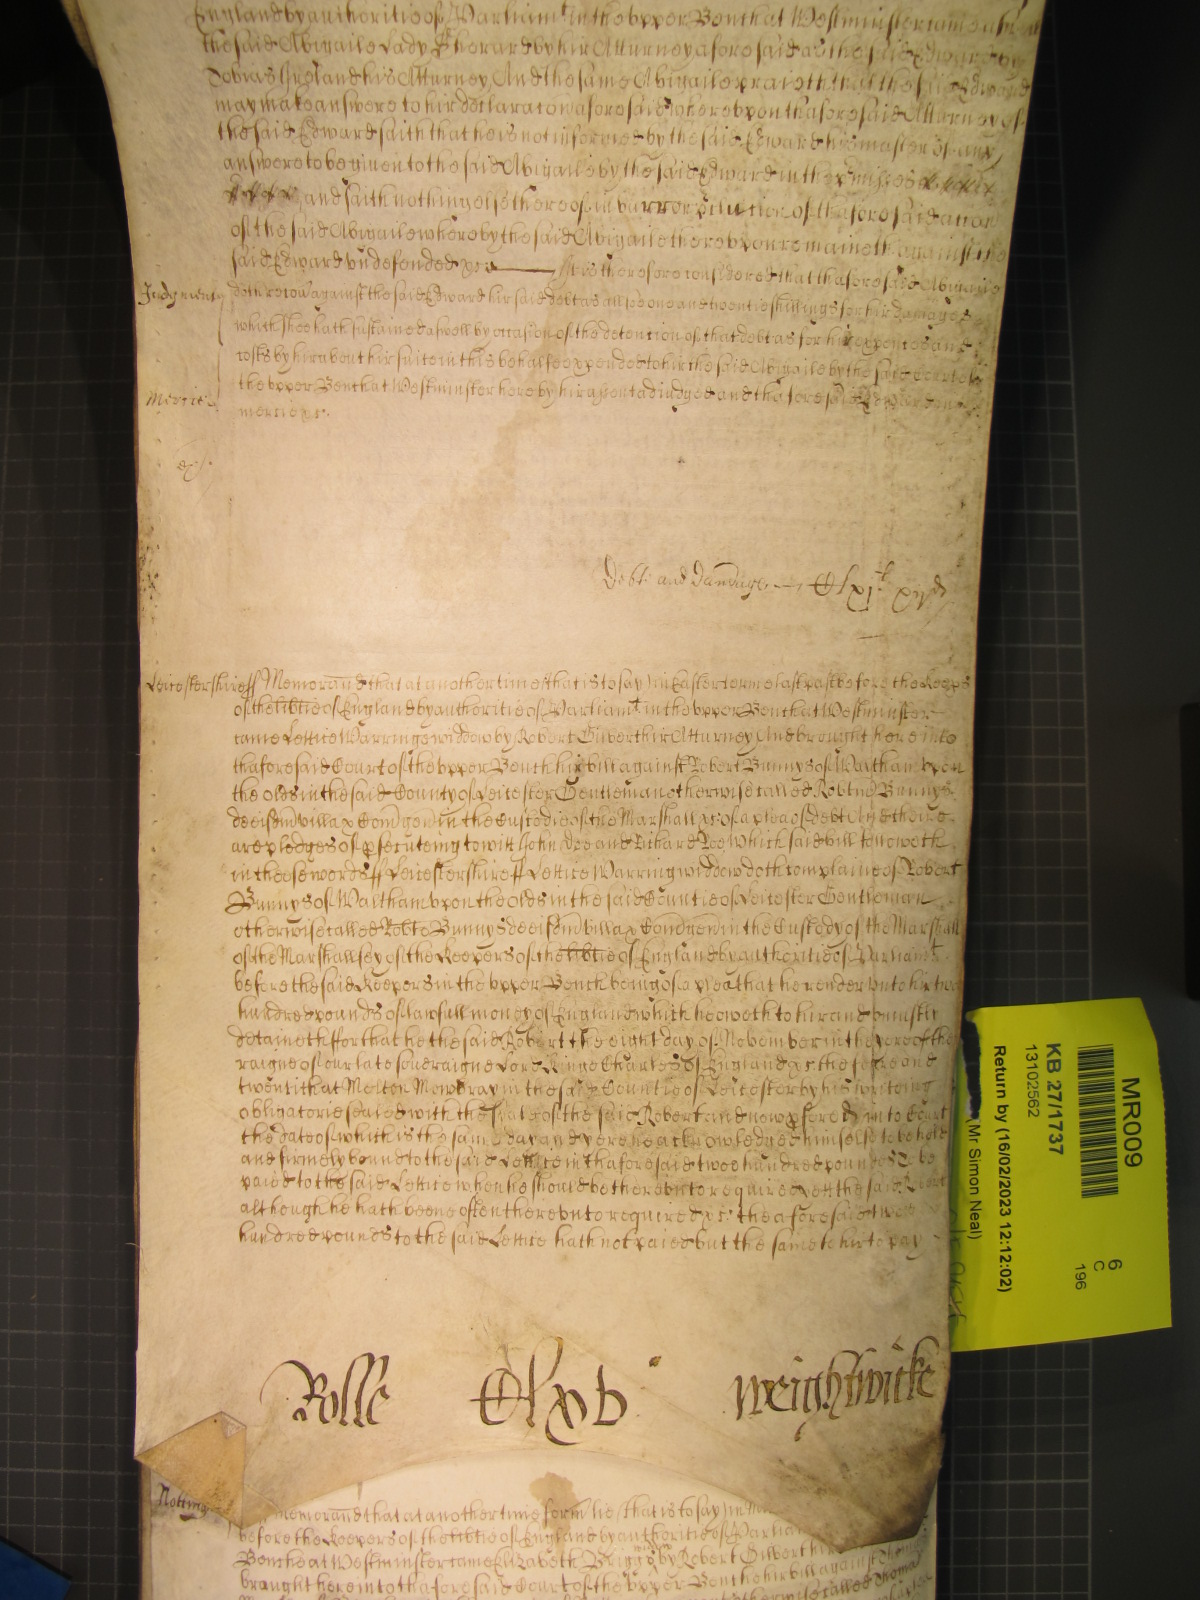 England by authoritie of Parliamt in the vpper Bench at Westminster came
the said Abigaile Lady Gherard by hir Atturney aforesaid as the said Edward by
Tobias Ireland his Atturney, And the same Abigaile praieth that the said Edward
may make answere to hir declaratcon aforesaid wherevpon thaforesaid Atturney of
the said Edward saith that he is not informed by the said Edward his master of any
answere to be giuen to the said Abigaile by the said Edward in the
and saith nothing else thereof in barr or of thaforesaid
of the said Abigaile whereby the said Abigaile therevpon remaineth against the
said Edward vndefended &c Itt is therefore considered that thaforesaid Abigaile
Judgment doth recover against the said Edward hir said debt as also one and twentie shillings for hir damages
which shee hath sustained aswell by occasion of the detention of that debt as for hir expences and
costs by hir about hir suite in this behalfe expended to hir the said Abigaile by the said Court of
the vpper Bench at Westminster here by hir assent adiudged and the foresaid Edward in
Mercie mercie &c.
Debt and Damage — Clxjli xijd
Leicestershire ss Memorand that at another time (that is to say) in Easter terme last past before the Keeps
of the libtie of England by authoritie of Parliamt in the vpper Bench at Westminster
came Lettice Warringe widdow by Robert Gilbert hir Atturney And brought here into
thaforesaid Court of the vpper Bench hir bill against Robert Bunnys of Waltham vpon
the olds in the said County of Leicester Gentleman otherwise called Robtus Bunnys
de eisdm villa & Com gen in the Custodie of the Marshall &c of a plea of debt And there
are pledges of psecuteing to witt John Doe and Richard Roe Which said bill followeth
in these words ss Leicestershire ss Lettice Warring widdow doth complaine of Robert
Bunnys of Waltham vpon the olds in the said Countie of Leicester Gentleman
otherwise called Robte Bunnys de eisdm villa & Com gen in the Custody of the Marshall
of the Marshallsey of the Keepers of the libtie of England by authoritie of Parliamt
before the said Keepers in the vpper Bench being of a plea that he render vnto hir two
hundred pounds of lawfull mony of England which he oweth to hir and vniustly
detaineth ffor that he the said Robert the eight day of November in the yere of the
raigne of our late soueraigne Lord Kinge Charles of England &c the and
twentith at Melton Mowbray in the said Countie of Leicester by his writeing
obligatorie sealed with the seale of the said Robert and now here into Court
the date of which is the same day and yere he acknowledged himselfe to be held
and firmely bound to the said Lettice in thaforesaid twoe hundred pounds to be
paid to the said Lettice when he should be therevnto required yett the said Robert
although he hath beene often therevnto required &c. the aforesaid two
hundred pounds to the said Lettice hath not paied but the same to hir to pay
Rolle Clxv Weightwicke
Notting Memorand that at another time (that is to say) in
before the Keepers of the libtie of England by authoritie of Parlia
Bench at Westminster came Elizabeth Briggs by Robert Gilbert hir
brought here into thaforesaid Court of the vpper Bench hir bill against Thomas
otherwise called Thomas
MR009
6
C
196
KB 27/1737
13102562
Return by (16/02/2023 12:12:02)
(Mr Simon Neal)